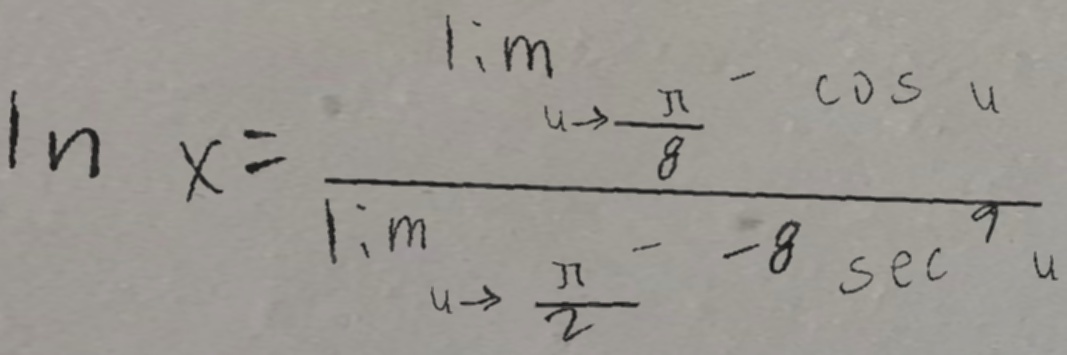 ln x = \frac{\lim_{u \to \frac{\pi}{8}^-} \cos u}{\lim_{u \to \frac{\pi}{2}^-} -8 \sec^9 u}